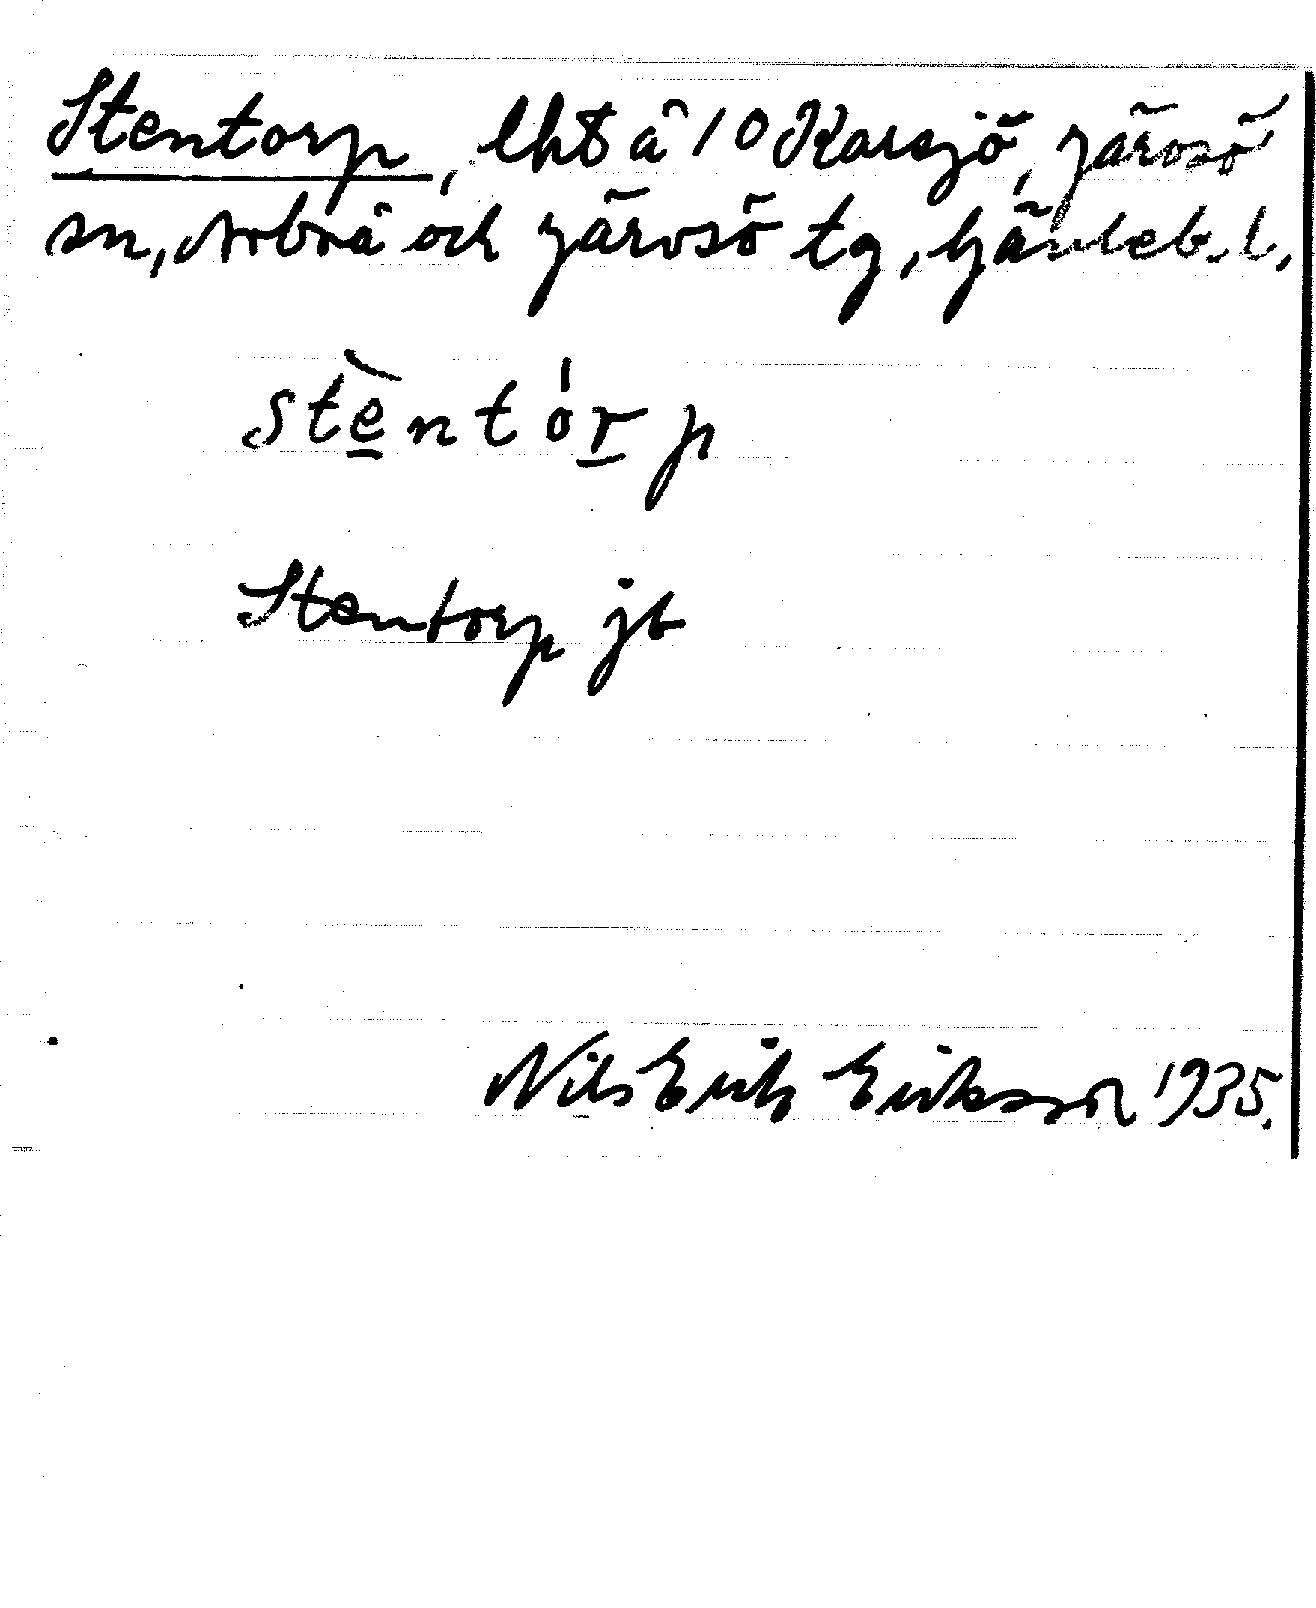 Stentorp, lht å 10 Karsjö, Järvsö
sn, Arbrå och Järvsö tg, Gävleb. l.
stè̱ntóṟp
Stentorp jb
Nils Erik Eriksson 1935.